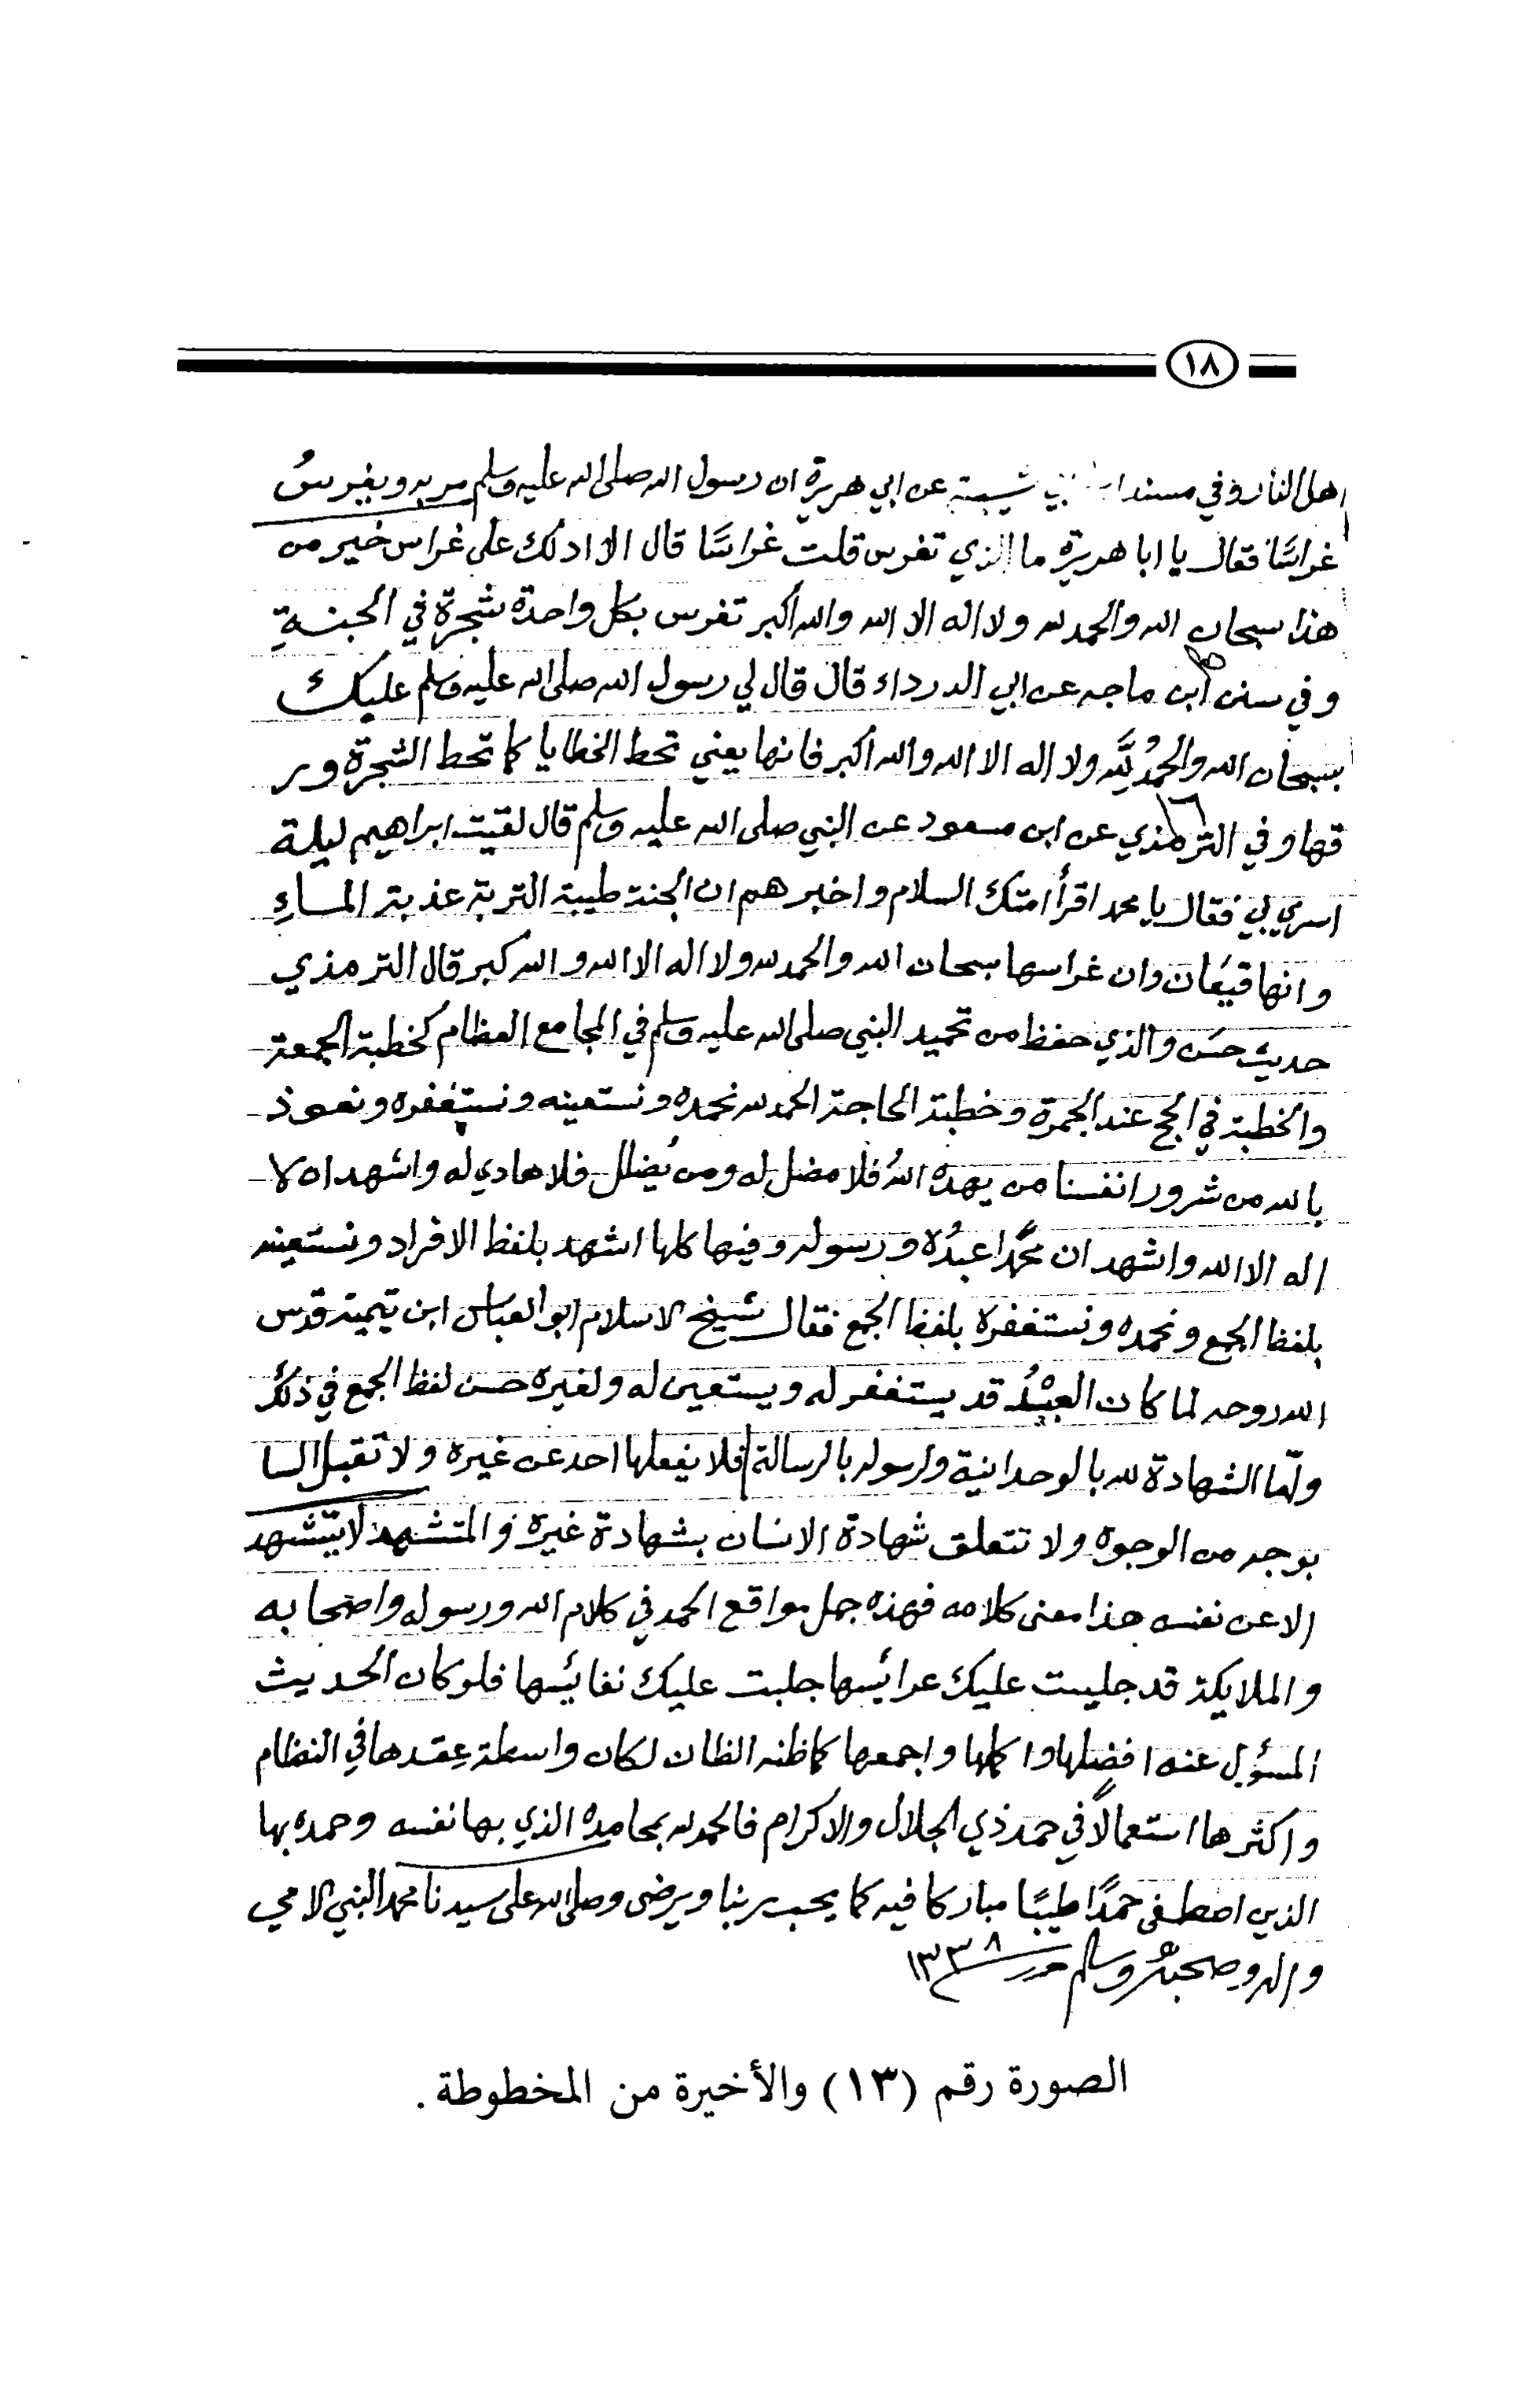 ١٨
اهل النار وفي مسند ابن ابي شيبة عن ابي هريرة ان رسول الله صلى الله عليه وسلم مر به ويغرسُ
غراسًا فقال يا ابا هريرة ما الذي تغرس قلت غراسًا قال الا ادلك على غراس خير من
هذا سبحان الله والحمد لله ولا اله الا الله والله أكبر تغرس بكل واحدة شجرة في الجنة
وفي سنن ابن ماجه عن ابي الدرداء قال قال لي رسول الله صلى الله عليه وسلم عليك
بسبحان الله والحمدُ لِلَّه ولا اله الا الله والله اكبر فانها يعني تحط الخطايا كما تحط الشجرة ور
قها وفي الترمذي عن ابن مسعود عن النبي صلى الله عليه وسلم قال لقيت ابراهيم ليلة
اسري بي فقال يا محمد اقرأ امتك السلام واخبرهم ان الجنة طيبة التربة عذبة الماءِ
وانها قيعَان وان غراسها سبحان الله والحمد لله ولا اله الا الله والله كبر قال الترمذي
حديث حسَن والذي حفظ من تحميد النبي صلى الله عليه وسلم في المجامع العظام كخطبة الجمعة
والخطبة في الحج عند الجمرة وخطبة الحاجة الحمد لله نحمده ونستعينه ونستغفره ونعوذ
بالله من شرور انفسنا من يهده اللهُ فلا مضل له ومن يُضلل فلا هادي له واشهد ان لا
اله الا الله واشهد ان محمدًا عبدُه ورسوله وفيها كلها اشهد بلفظ الافراد ونستعينه
بلفظ الجمع ونحمده ونستغفره بلفظ الجمع فقال شيخ الاسلام ابو العباس ابن تيمية قدس
الله روحه لما كان العبْدُ قد يستغفر له ويستعين له ولغيره حسن لفظ الجمع في ذلك
ولمّا الشهادة لله بالوحدانية ولرسوله بالرسالة فلا يفعلها احد عن غيره ولا تقبل النيا
بوجه من الوجوه ولا تتعلق شهادة الانسان بشهادة غيره والمتشهد لا يتشهد
الا عن نفسه هذا معنى كلامه فهذه جمل مواقع الحمد في كلام الله ورسوله واصحابه
والملايكة قد جليت عليك عرائسها جلبت عليك نفائسها فلو كان الحديث
المسؤل عنه افضلها واكملها واجمعها كما ظنه الظان لكان واسطة عِقدها في النظام
واكثرها استعمالًا في حمد ذي الجلال والاكرام فالحمد لله بمحامِده الذي بها نفسه وحمده بها
الذين اصطفى حمدًا طيبًا مباركا فيه كما يحب ربنا ويرضى وصلى الله على سيدنا محمد النبي الامي
واله وصحبه وسلم حرر ١٣٣٨
الصورة رقم (١٣) والأخيرة من المخطوطة.